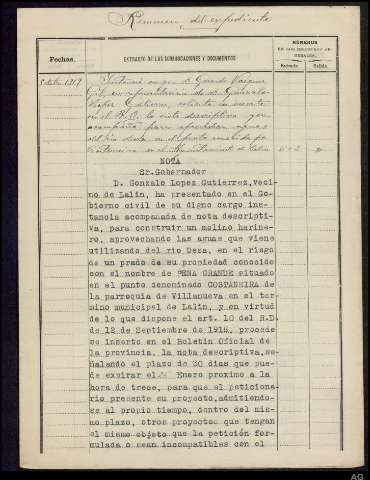 Resumen del expediente
Fechas.
EXTRACTO DE LAS COMUNICACIONES Y DOCUMENTOS
NÚMEROS
Entrada
Salida.
1919
Instancia en que D. Gerardo Vazquez
Gil en representación de D. Gonzalo
Lopez Gutierrez, solicita la inserción
en el B.O. la nota descriptiva que
acompaña para aprovechar aguas
del río Deza en el punto
NOTA
Sr.Gobernador
D. Gonzalo Lopez Gutierrez,Veci-
no de Lalin, ha presentado en el Go-
bierno civil de su digno cargo ins-
tancia acompañada de nota descripti-
va, para construir un molino harine-
ro, aprovechando las aguas que viene
utilizando del rio Deza, en el riego
de un prado de su propiedad conocido
con el nombre de PENA GRANDE situado
en el punto denominado COSTANEIRA de
la parroquia de Villanueva en el ter-
mino municipal de Lalin, y en virtud
de lo que dispone el art. 10 del R.D.
de 12 de Septiembre de 1918, procede
se inserte en el Boletin Oficial de
la provincia, la nota descriptiva,se-
ñalando el plazo de 30 dias que pue-
de expirar el Enero proximo a la
hora de trece, para que el peticiona-
rio presente su proyecto,admitiendo-
se al propio tiempo, dentro del mis-
mo plazo, otros proyectos que tengan
el mismo objeto que la petición for-
mulada o sean incompatibles con el
AG